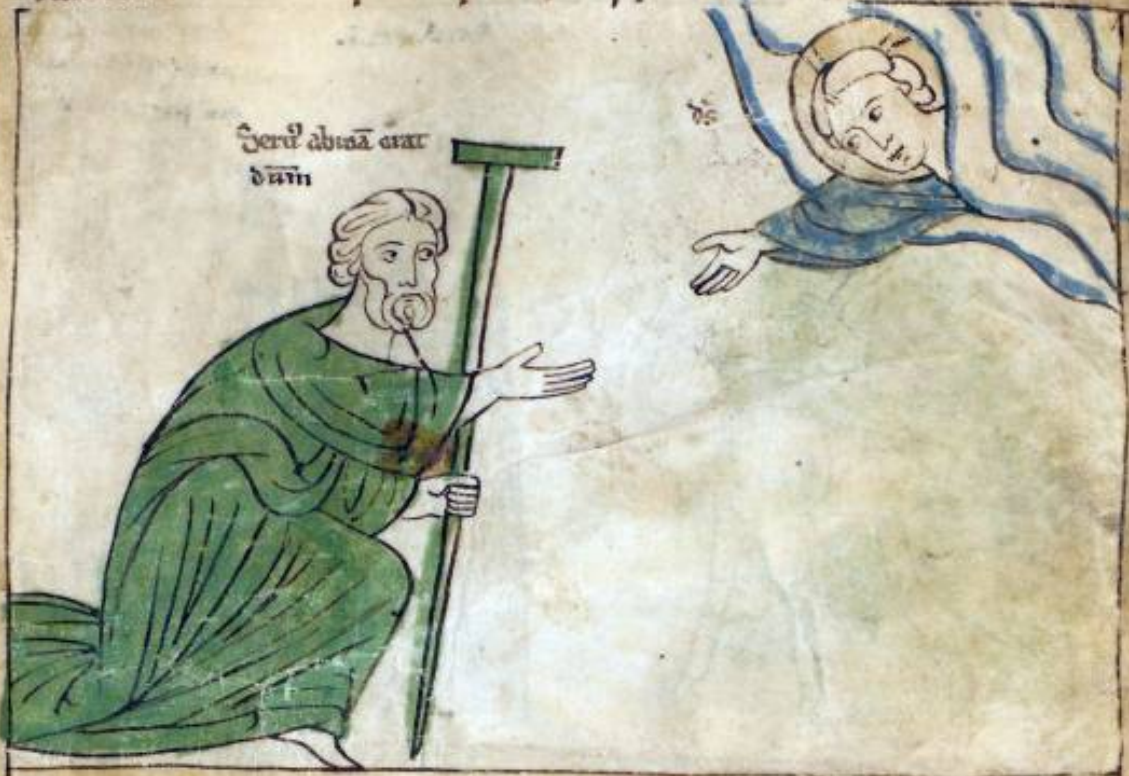 Seruꝰ abraā orat
dn̄m
ds̄